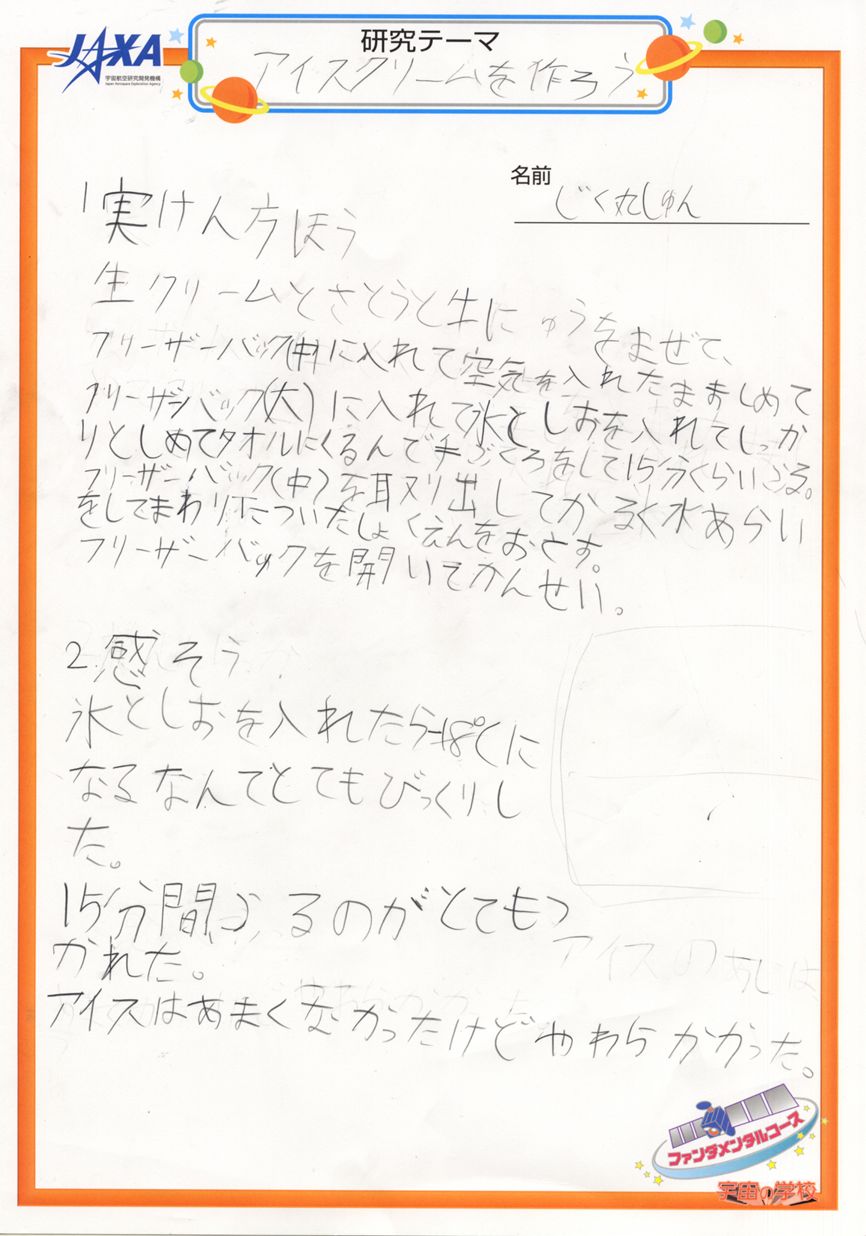 JAXA
宇宙航空研究開発機構
Japan Aerospace Exploration Agency
研究テーマ
アイスクリームを作ろう
名前
じく丸しゅん
1実けん方ほう
生クリームとさとうと牛にゅうをまぜて、
フリーザーバック(中)に入れて空気を入れたまましめて
フリーザーバック(大)に入れて氷としおを入れてしっか
りとしめてタオルにくるんで手ぶくろをして15分くらいふる。
フリーザーバック(中)を取り出してかるく水あらい
をしてまわりについたしょくえんをおとす。
フリーザーバックを開いてかんせい。
2感そう
氷としおを入れたら-18℃に
なるなんてとてもびっくりし
た。
15分間ふるのがとてもつ
かれた。
アイスのあじは
アイスはあまくなかったけどやわらかかった。
ファンダメンタルコース
宇宙の学校